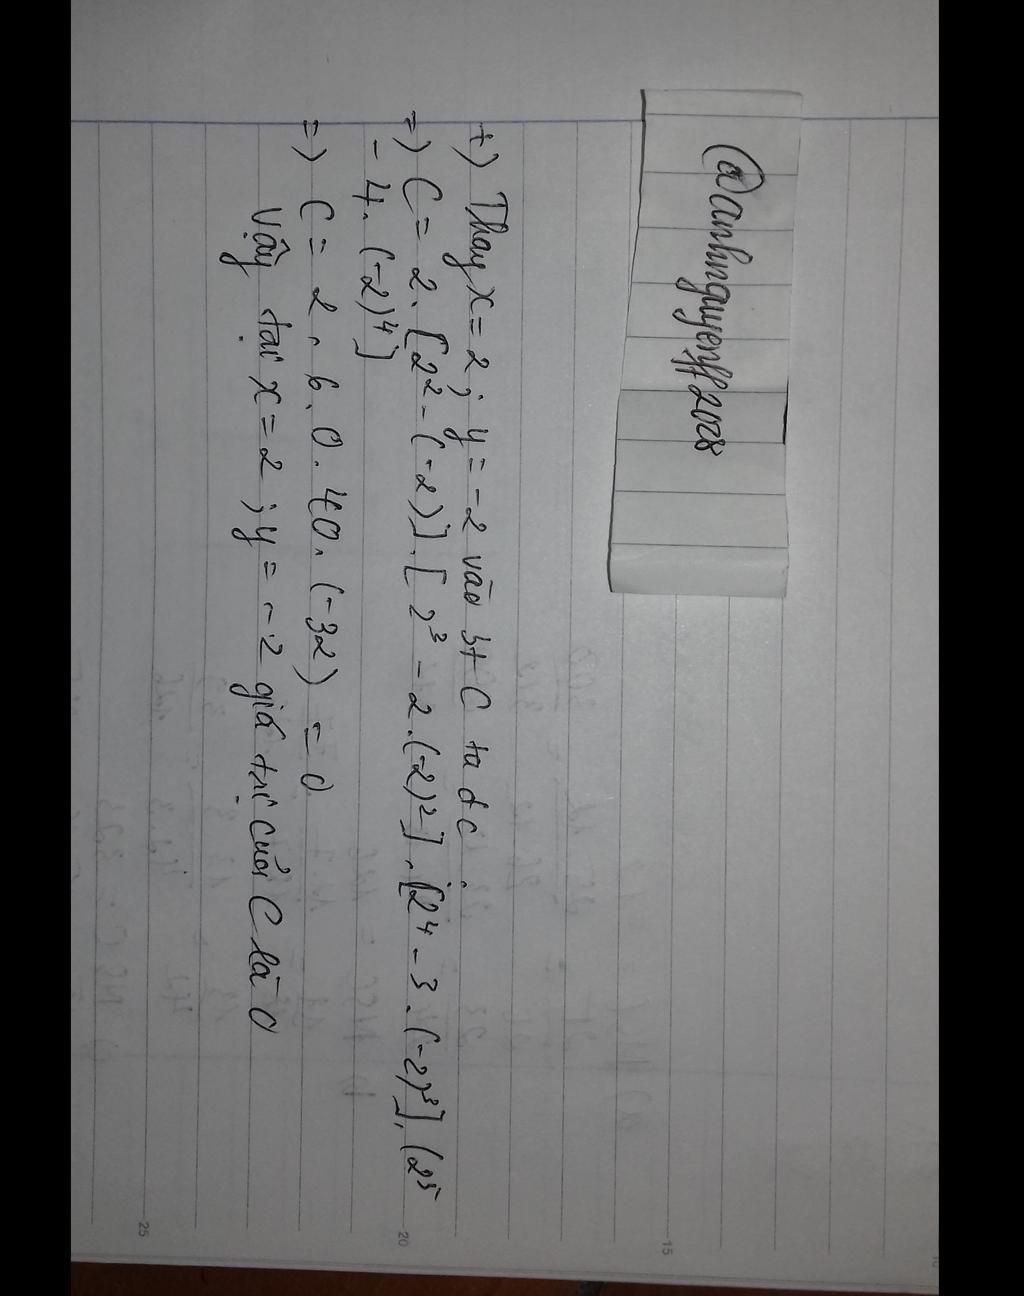 @anhnguyenff2028
+) Thay x = 2 ; y = -2 vào bt C ta đc :
=) C = 2. [2² - (-2)]. [2³ - 2.(-2)²]. [2⁴ - 3. (-2)³]. (2⁵
- 4. (-2)⁴]
=) C = 2. 6. 0. 40. (-32) = 0
Vậy tại x = 2 ; y = -2 giá trị của C là 0
15
20
25